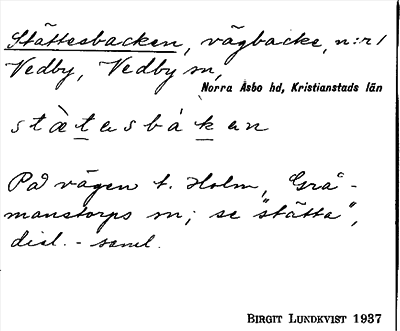 Stättesbacken, vägbacke, n:r 1
Vedby, Vedby sn,
Norra Åsbo hd, Kristianstads län
stæ̀tesbáken
På vägen t. Holm, Grå-
manstorps sn; se "stätta",
dial.-saml.
BIRGIT LUNDKVIST 1937